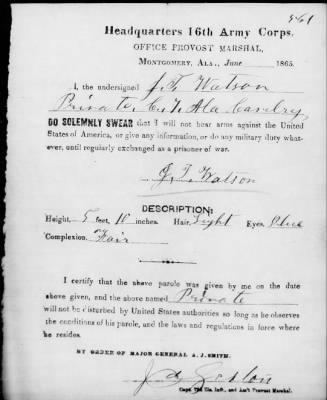 Headquarters 16th Army Corps,
OFFICE PROVOST MARSHAL,
MONTGOMERY, ALA., June 1865.
I, the undersigned J. T. Watson
Private, Ala Cavelry
DO SOLEMNLY SWEAR that I will not bear arms against the United
States of America, or give any information, or do any military duty what-
ever, until regularly exchanged as a prisoner of war.
J. T. Watson
DESCRIPTION:
Height, 5 feet, 10 inches. Hair, Light Eyes, Blue
Complexion, Fair
I certify that the above parole was given by me on the date
above given, and the above named Private
will not be disturbed by United States authorities so long as he observes
the conditions of his parole, and the laws and regulations in force where
he resides.
BY ORDER OF MAJOR GENERAL A. J. SMITH.
Capt. Ills. Inft., and Ass't Provost Marshal.